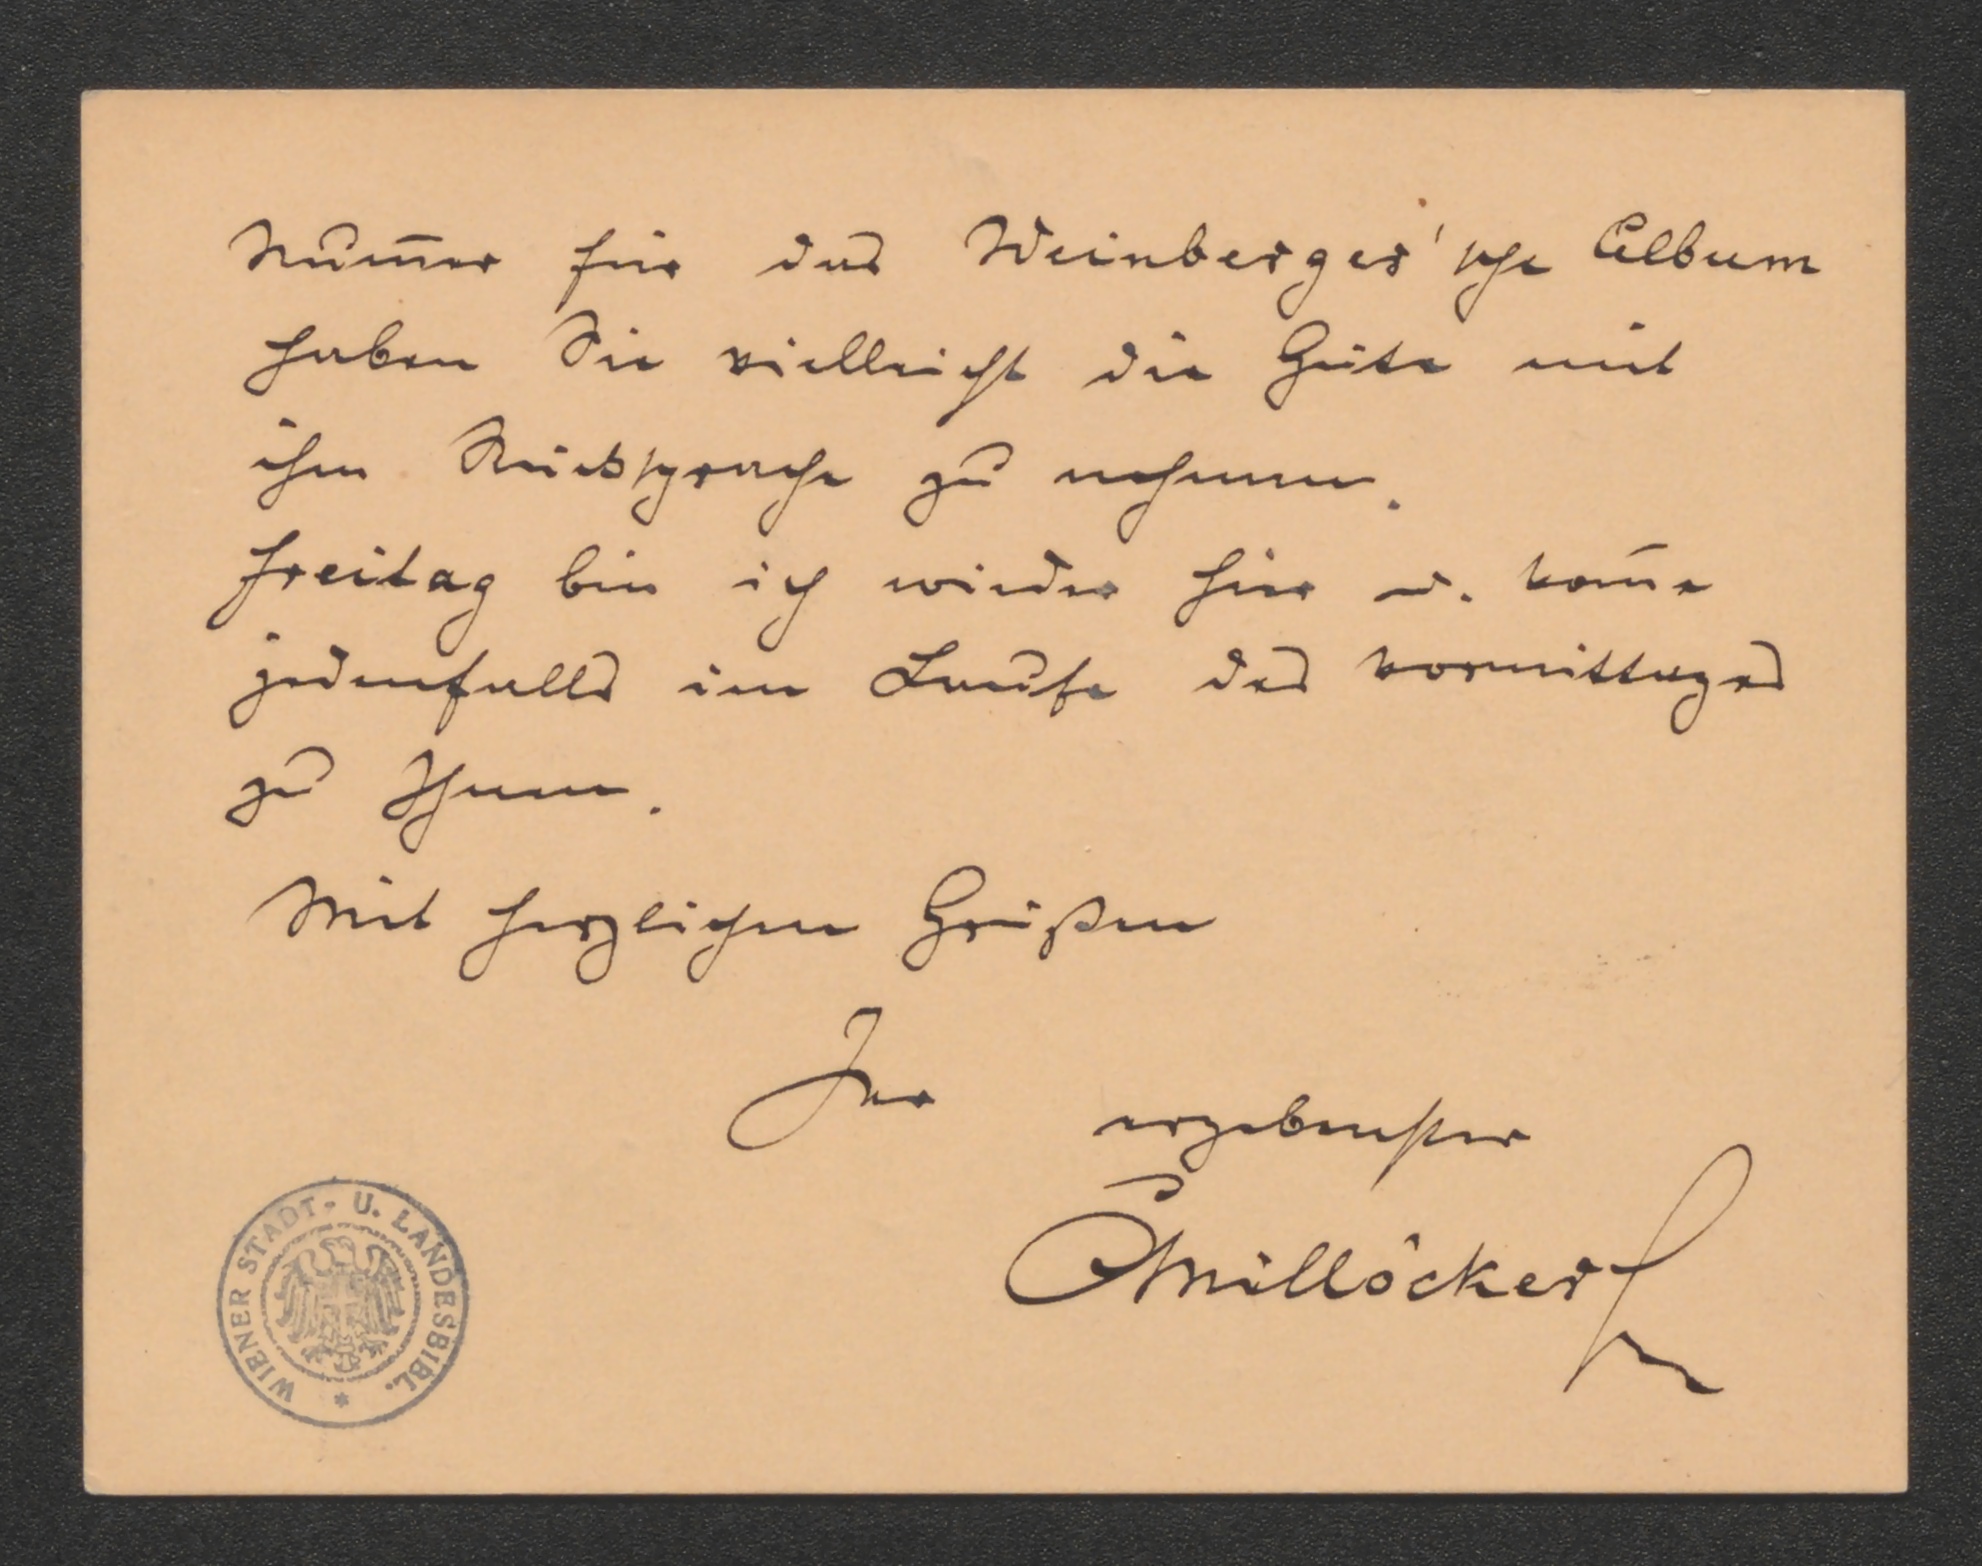 Num̄er für das Weinberger'sche Album
haben Sie vielleicht die Güte mit
ihm Rücksprache zu nehmen.
Freitag bin ich wieder hier u. kom̄e
jedenfalls im Laufe des Vormittages
zu Ihnen.
Mit herzlichen Grüßen
Ihr
ergebenster
CMillöcker
WIENER STADT- U. LANDESBIBL. *